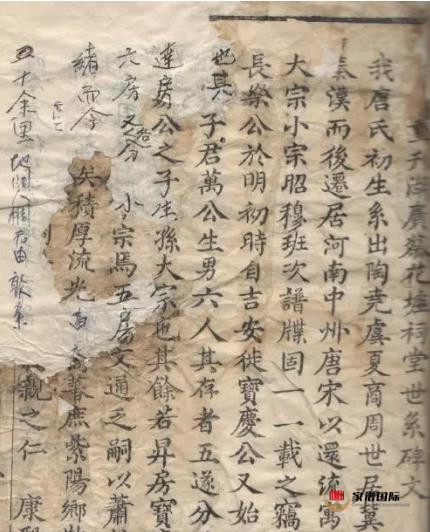 湖廣蔡花祠堂世系碑文
我唐氏初生系出陶堯虞夏商周世居冀
秦漢而後遷居河南中州唐宋以還流寓
大宗小宗昭穆班次譜牒固一一載之竊
長樂公於明初時自吉安徙寶慶公又始
也其子君萬公生男六人其存者五遂分
達房公之子生孫大宗也其餘若昇房寶
六房又分小宗馬五房文通之嗣以蕭
緒而今矣積厚流光裔蕃庶紫陽鄉
五十余里地親之仁康
家谱国际